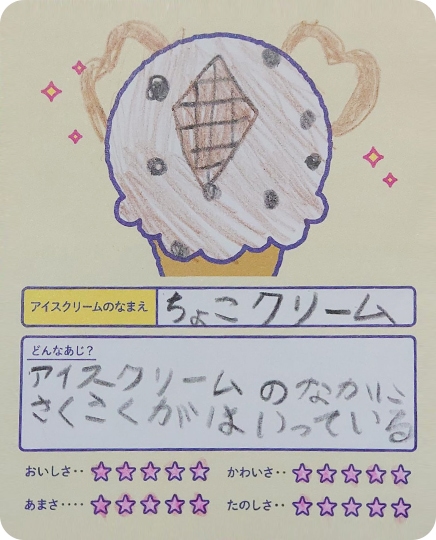 アイスクリームのなまえ ちょこクリーム
どんなあじ？
アイスクリームのなかに
さくさくがはいっている
おいしさ‥ ☆☆☆☆☆ かわいさ‥ ☆☆☆☆☆
あまさ‥‥ ☆☆☆☆☆ たのしさ‥ ☆☆☆☆☆